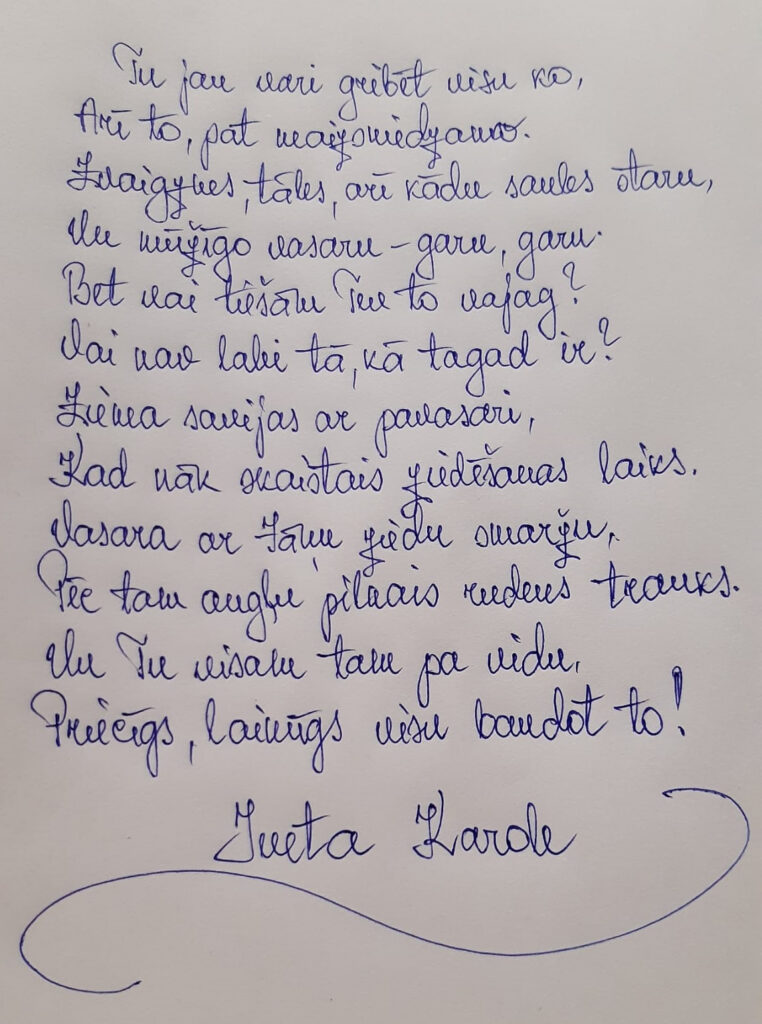 Tu jau vari gribēt visu ko,
Arī to, pat neaizsniedzamo.
Zvaigznes, tāles, arī kādu saules staru,
Un mūžīgo vasaru - garu, garu.
Bet vai tiešām Tev to vajag?
Vai nav labi tā, kā tagad ir?
Ziema savijas ar pavasari,
Kad nāk skaistais ziedēšanas laiks.
Vasara ar Jāņu ziedu smaržu,
Pēc tam augļu pilnais rudens trauks.
Un Tu visam tam pa vidu,
Priecīgs, laimīgs visu baudot to!
Iveta Karde